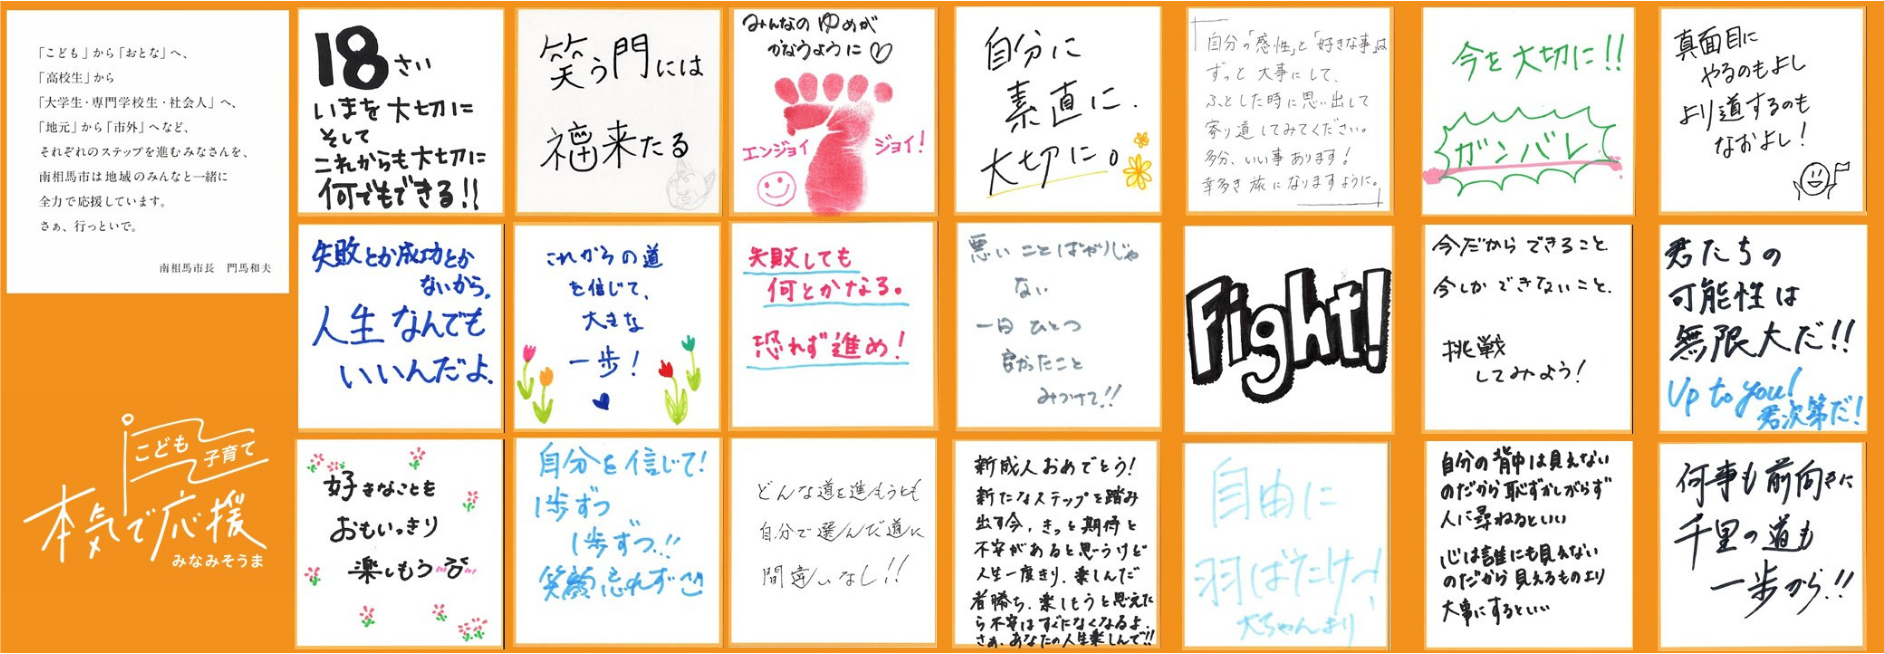 「こども」から「おとな」へ、
「高校生」から
「大学生・専門学校生・社会人」へ、
「地元」から「市外」へなど、
それぞれのステップを進むみなさんを、
南相馬市は地域のみんなと一緒に
全力で応援しています。
さぁ、行っといで。
南相馬市長　門馬和夫
こども
子育て
本気で応援
みなみそうま
18さい
いまを大切に
そして
これからも大切に
何でもできる!!
笑う門には
福来たる
みんなのゆめが
かなうように♡
エンジョイ
ジョイ!
自分に
素直に.
大切に。
「自分の「感性」と「好きな事」は
ずっと大事にして、
ふとした時に思い出して
寄り道してみてください。
多分、いい事あります!
幸多き旅になりますように。」
今を大切に!!
ガンバレ
真面目に
やるのもよし
より道するのも
なおよし!
失敗とか成功とか
ないから。
人生なんでも
いいんだよ.
これからの道
を信じて、
大きな
一歩!
失敗しても
何とかなる。
恐れず進め!
悪いことばかりじゃ
ない
一日ひとつ
良かったこと
みつけて!!
Fight!
今だからできること
今しかできないこと.
挑戦
してみよう!
君たちの
可能性は
無限大だ!!
Up to you!
君次第だ!
好きなことを
おもいっきり
楽しもう
自分を信じて!
1歩ずつ
1歩ずつ.!!
笑顔忘れず
どんな道を進もうとも
自分で選んだ道に
間違いなし!!
新成人おめでとう!
新たなステップを踏み
出す今、きっと期待と
不安があると思うけど
人生一度きり、楽しんだ
者勝ち、楽しもうと思えた
ら不安はすぐになくなるよ.
さあ、あなたの人生楽しんで!!
自由に
羽ばたけ〜!
大ちゃんより
自分の背中は見えない
のだから恥ずかしがらず
人に尋ねるといい
心は誰にも見えない
のだから見えるものより
大事にするといい
何事も前向きに
千里の道も
一歩から.!!